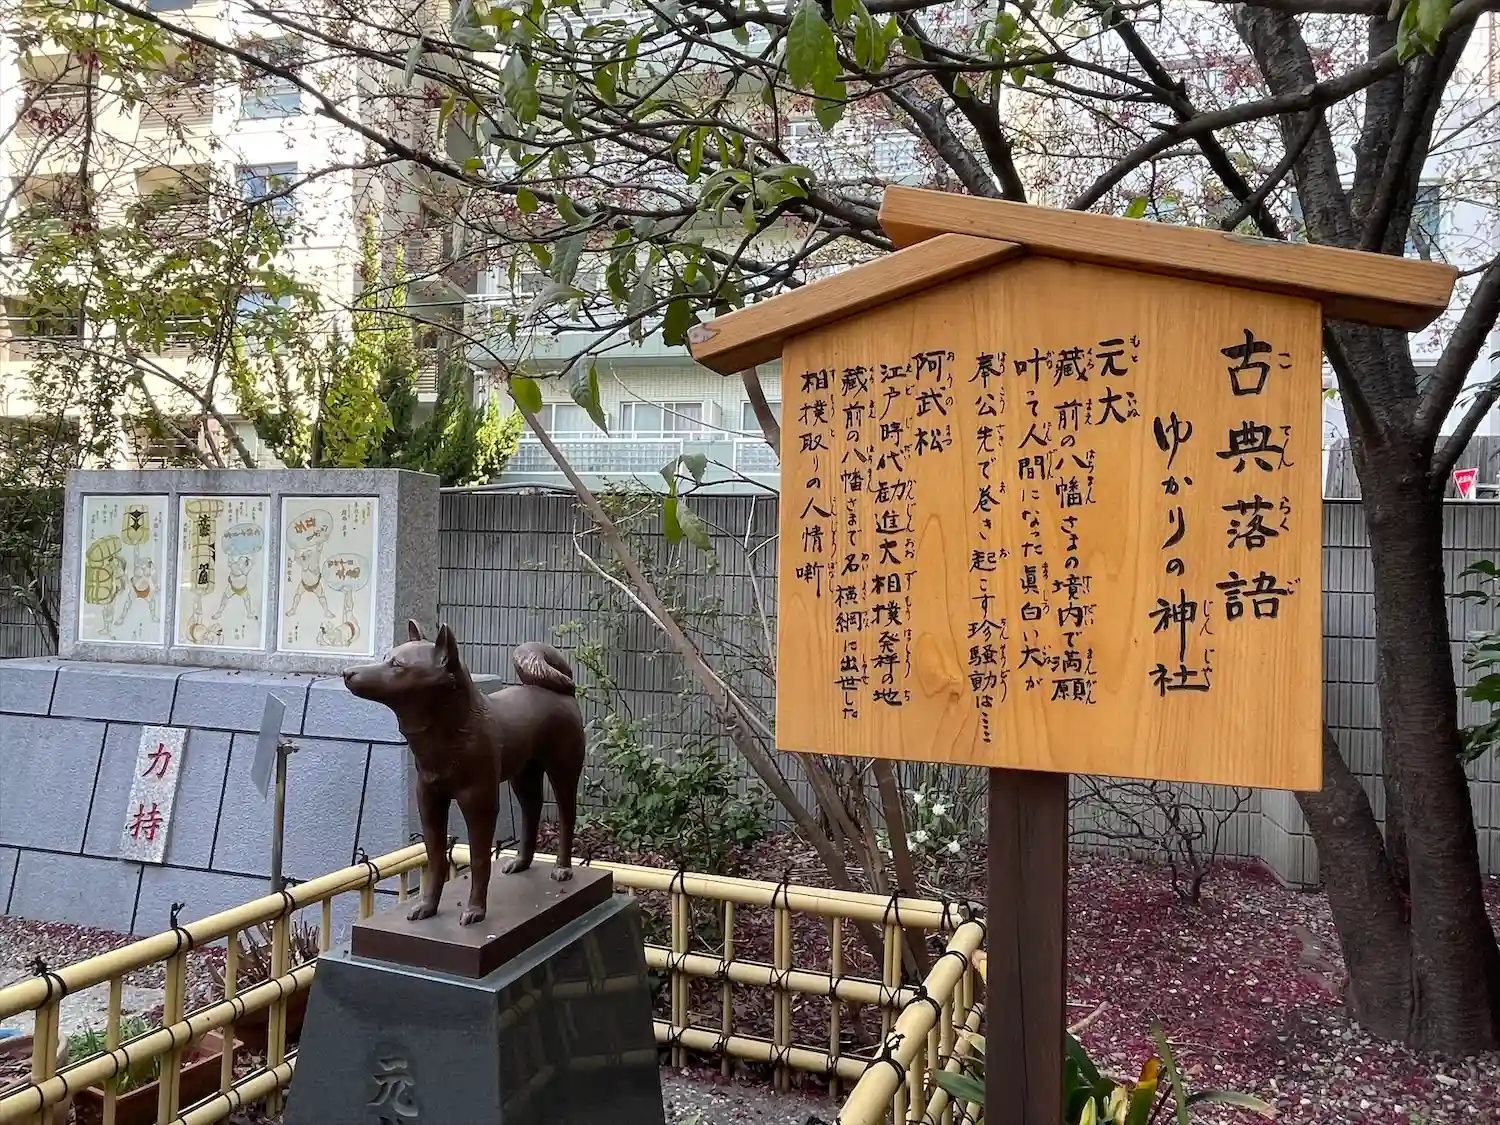 古典落語
ゆかりの神社
元犬
藏前の八幡さまの境内で満願
叶って人間になった眞白い犬が
奉公先で巻き起こす珍騒動は……
阿武松
江戸時代勧進大相撲発祥の地
藏前の八幡さまで名横綱に出世した
相撲取りの人情噺
力持
元